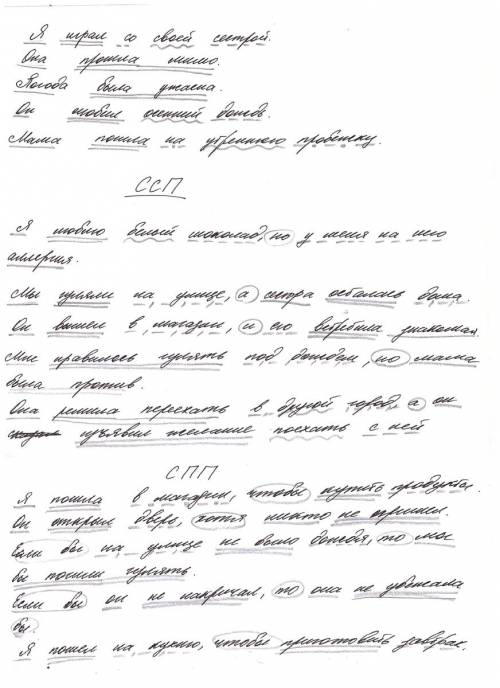 Я играл со своей сестрой.
Она прошла мимо.
Погода была ужасна.
Он любил осенний дождь.
Мама пошла на утреннюю пробежку.
ССП
Я люблю белый шоколад, но у меня на него
аллергия.
Мы гуляли на улице, а сестра осталась дома.
Он вышел в магазин, и его встретила знакомая.
Мне нравилось гулять под дождём, но мама
была против.
Она решила переехать в другой город, а он
изъявил желание поехать с ней
СПП
Я пошла в магазин, чтобы купить продукты.
Он открыл дверь, хотя никто не пришел.
Если бы на улице не было дождя, то мы
бы пошли гулять.
Если бы он не накричал, то она не убежала
бы.
Я пошел на кухню, чтобы приготовить завтрак.